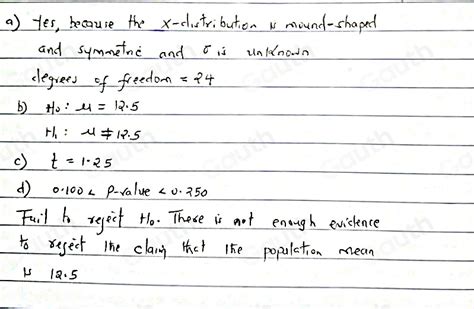 a) Yes, because the x-distribution is mound-shaped
and symmetric and σ is unknown
degrees of freedom = 24
b) H₀: μ = 12.5
H₁: μ ≠ 12.5
c) t = 1.25
d) 0.100 < P-value < 0.250
Fail to reject H₀. There is not enough evidence
to reject the claim that the population mean
is 12.5